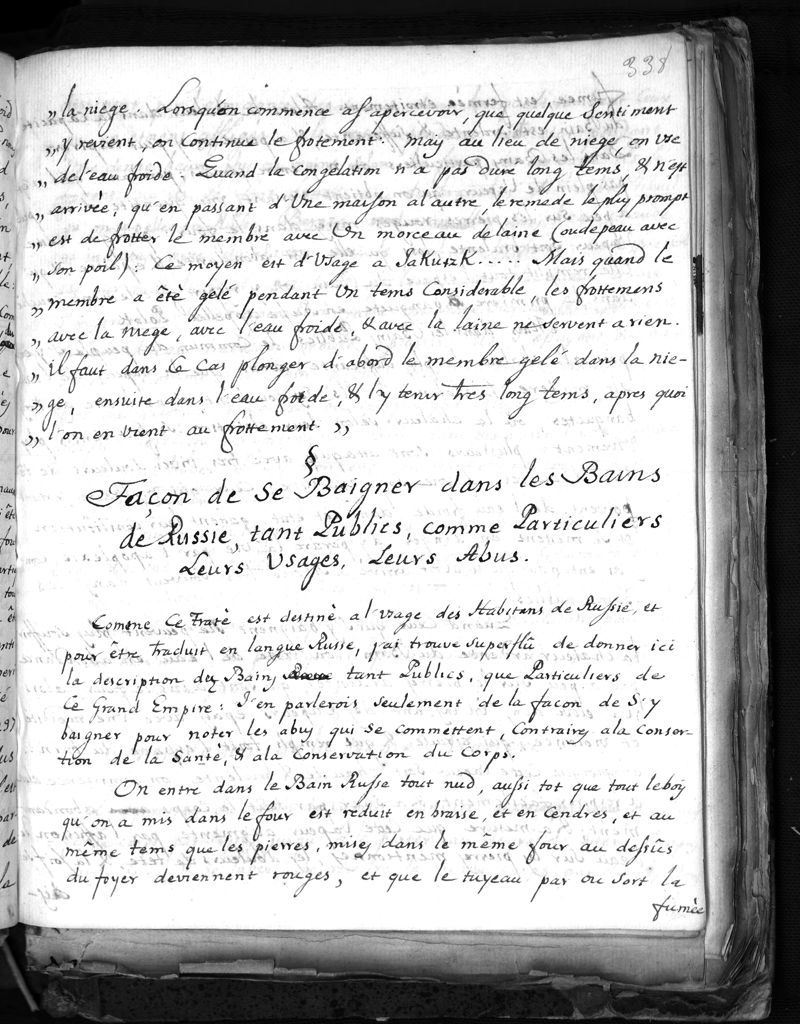 338
„ la niege. Lorsqu'on commence a S'apercevoir, que quelque Sentiment
„ y revient, on Continue le frotement: may au lieu de niege, on use
„ de l'eau froide. Quand la Congélation n'a pas duré long tems, & n'est
„ arrivée, qu'en passant d'Une maison al'autre, le remede le pluy prompt
„ est de frotter le membre avec Un morceau de laine (oudepeau avec
„ Son poil): Ce moyen est d'Usage a Jakuszk..... Mais quand le
„ membre a êtè gelé pendant Un tems Considerable, les frottemens
„ avec la niege, avec l'eau froide, & avec la laine ne servent a rien.
„ il faut dans Ce Cas plonger d'abord le membre gelé dans la nie-
„ ge, ensuite dans l'eau froide, & l'y tenir très long tems, apres quoi
„ l'on en vient au frottement „
§
Façon de Se Baigner dans les Bains
de Russie, tant Publics, comme Particuliers
Leurs Usages, Leurs Abus.
Comme Ce Traté est destinè a l'usage des Habitans de Russie, et
pour être traduit en langue Russe, j'ai trouvé superflû de donner ici
la description dey Bainy tant Publics, que Particuliers de
Ce Grand Empire: J'en parlerois seulement de la façon de S'y
baigner pour noter les abuy qui Se commettent, Contrairey ala Conser-
tion de la Santè, & ala Conservation du Corps.
On entre dans le Bain Russe tout nud, aussi tot que tout leboy
qu'on a mis dans le four est reduit en braise, et en Cendres, et au
même tems que les pierres, misey dans le même four au dessûs
du foyer deviennent rouges, et que le tuyeau par ou Sort la
fumèe